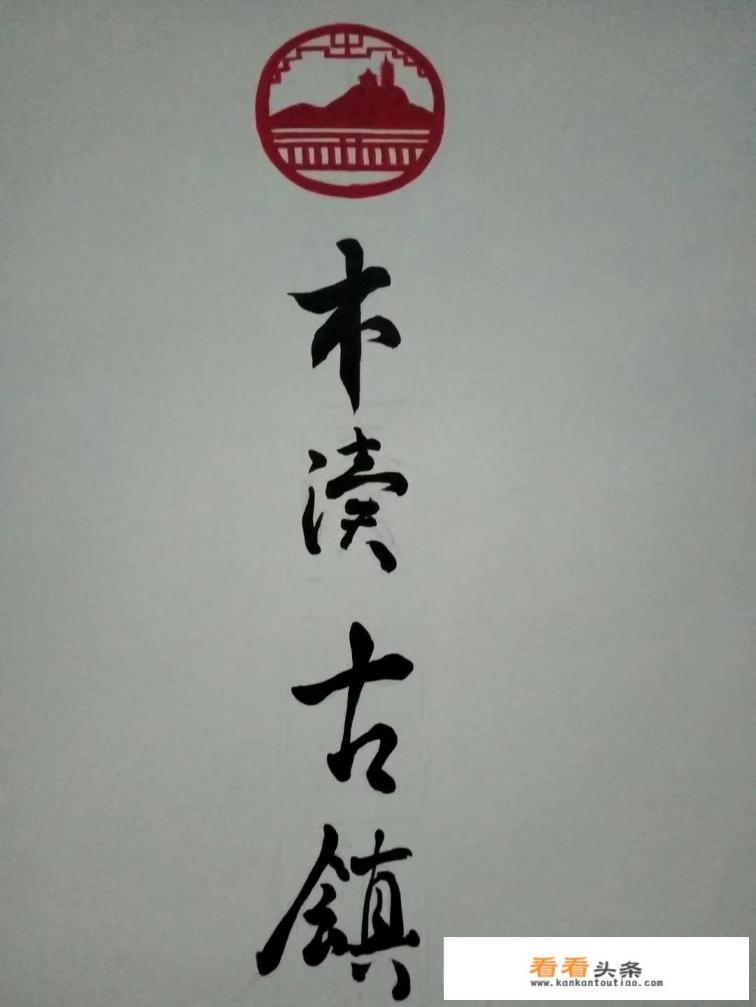 木渎古镇
看看头条
www.kankantoutiao.com